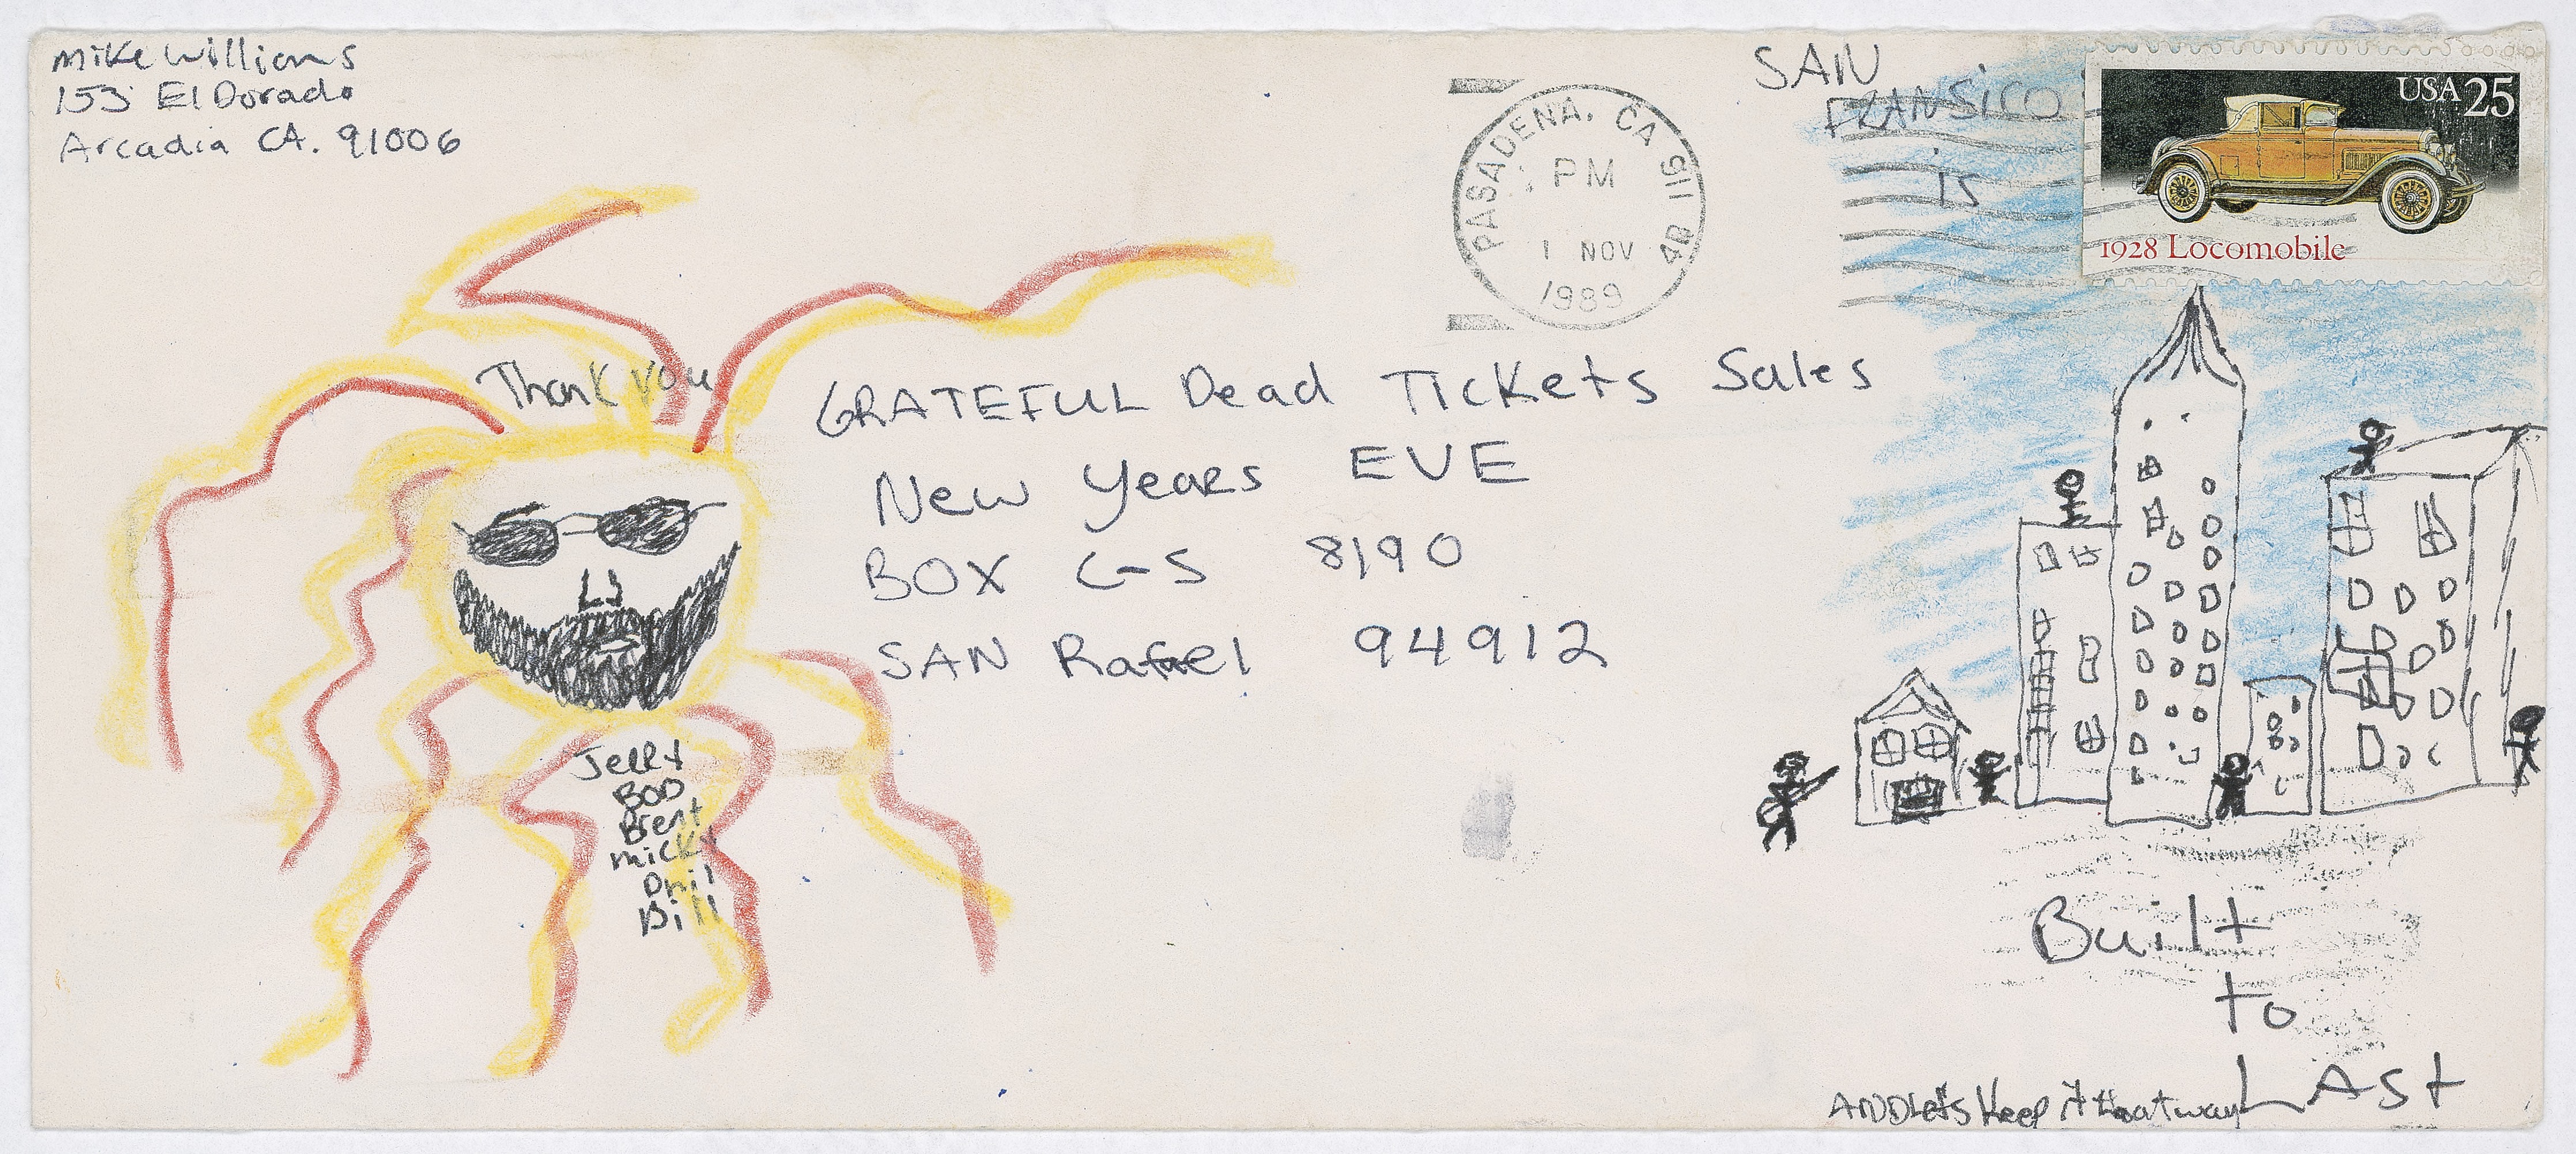 Mike Williams
153 El Dorado
Arcadia CA. 91006
PASADENA, CA 911 4B
PM
1 NOV
1989
SAN
FRANSICO
is
USA 25
1928 Locomobile
Thank you
GRATEFUL Dead Tickets Sales
New Years EVE
BOX G-S 8190
SAN Rafael 94912
Jerry
BOB
Brent
Micky
Phil
Bill
Built
to
LAST
AND Lets Keep it that way